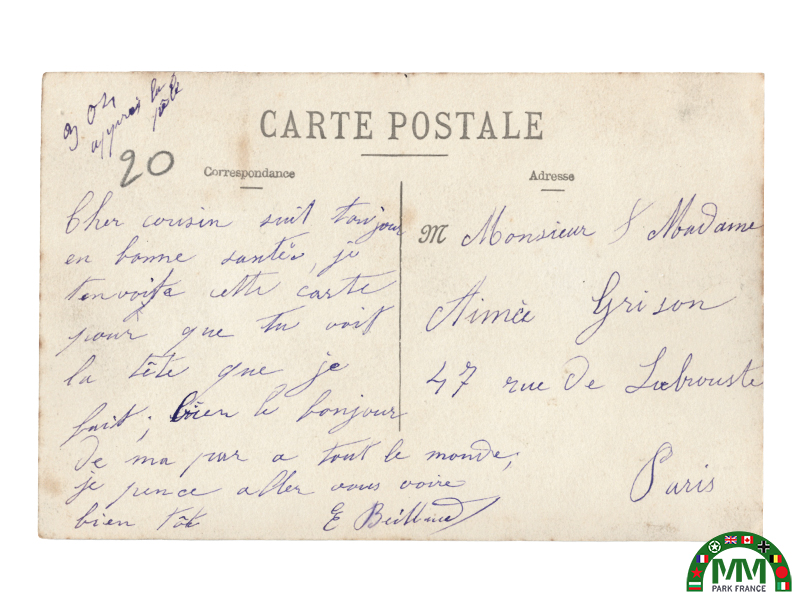 20
CARTE POSTALE
Correspondance
Cher cousin suit toujour
en bonne santé, je
t'envoiya cette carte
pour que tu voit
la tête que je
fait; bien le bonjour
de ma par a tout le monde;
je pence aller vous voire
bien tôt E
Adresse
M Monsieur & Madame
Aimée Grison
47 rue de Labrouste
Paris
MM
PARK FRANCE